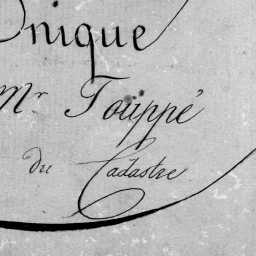 Unique
Mr. Touppé
du Cadastre